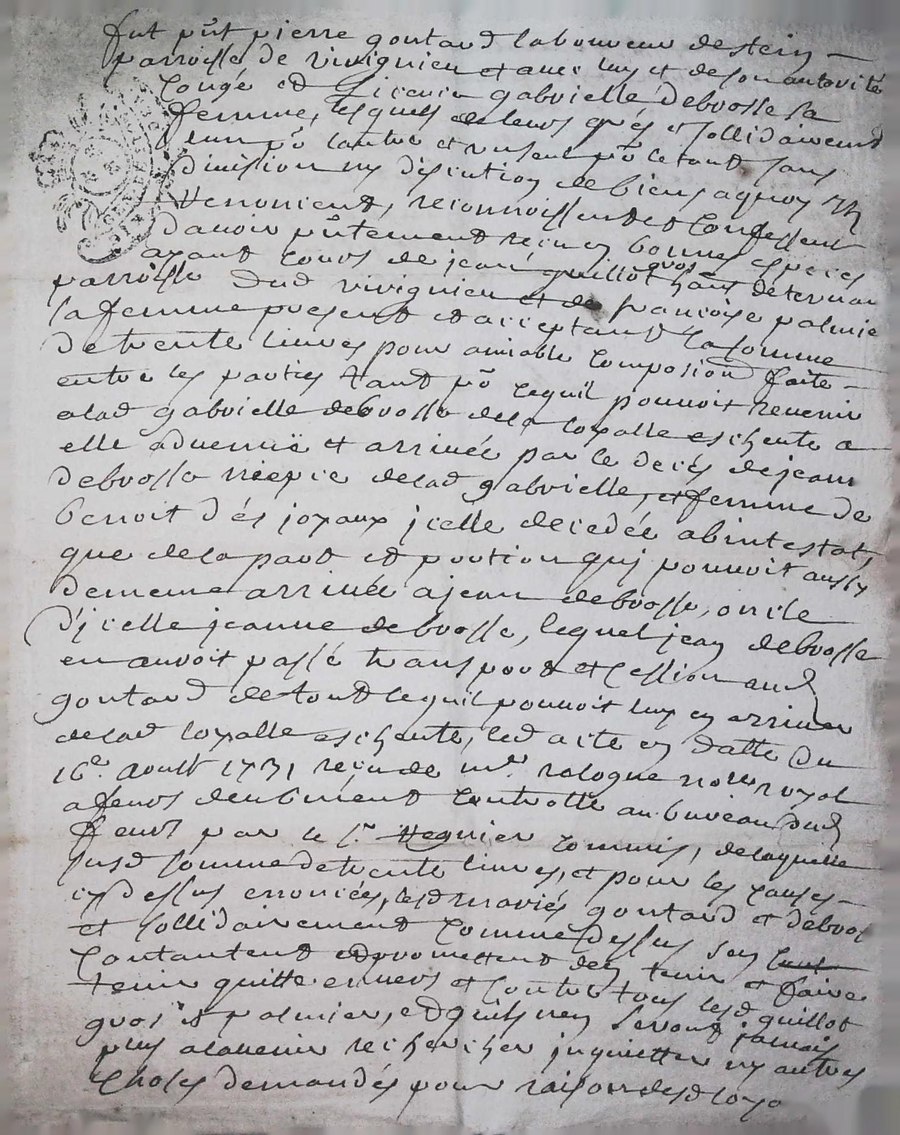 fut pñt pierre goutard laboureur destein
parroisse de vivignieu et avec luy et de son autorité
congé et licence gabrielle debrosse sa
femme, lesquels de leurs grés et sollidairement
l'un po l'autre et un seul po le tout sans
division ny discution de biens aquoy ils
Renoncient, reconnoissent et confessent
davoir pñtement reçu en bonnes especes
ayant cours de jean guillot
parroisse dud vivignieu et de francoise palmie
sa femme present et acceptant la somme
de trente livres pour amiable composion faite
entre les parties tant po ce quil pouvoit revenir
alad gabrielle debrosse de la loyalle eschente a
elle advenuë et arrivée par le decés de jeann
debrosse niepce delad gabrielle, et femme de
benoit dés joyaux jcelle decedée abintestat,
que de la part et portion qui pouvoit aussy
de meme arrivée a jean debrosse, oncle
d'jcelle jeanne debrosse, lequel jean debrosse
en auvoit passé transport et cession aud
goutard de tout ce quil pouvoit luy en arriver
delad loyalle eschente, led acte en datte du
16e. aoust 1731 reçu de me. rologue nore royal
afeurs deubment controllé au bureau dud
feurs par le sr. Regnier commis, de laquelle
susd somme de trente livres, et pour les causes
cy dessus enoncées, lesd mariés goutard et debros
et sollidairement comme dessus son
contantent et promettent den tenir et faire
tenir quitte envers et contre tous lesd guillot
et palmier, et quils ny seront jamais
plus alavenir rechercher jnquietter ny autres
choses demandés pour raison desd loya